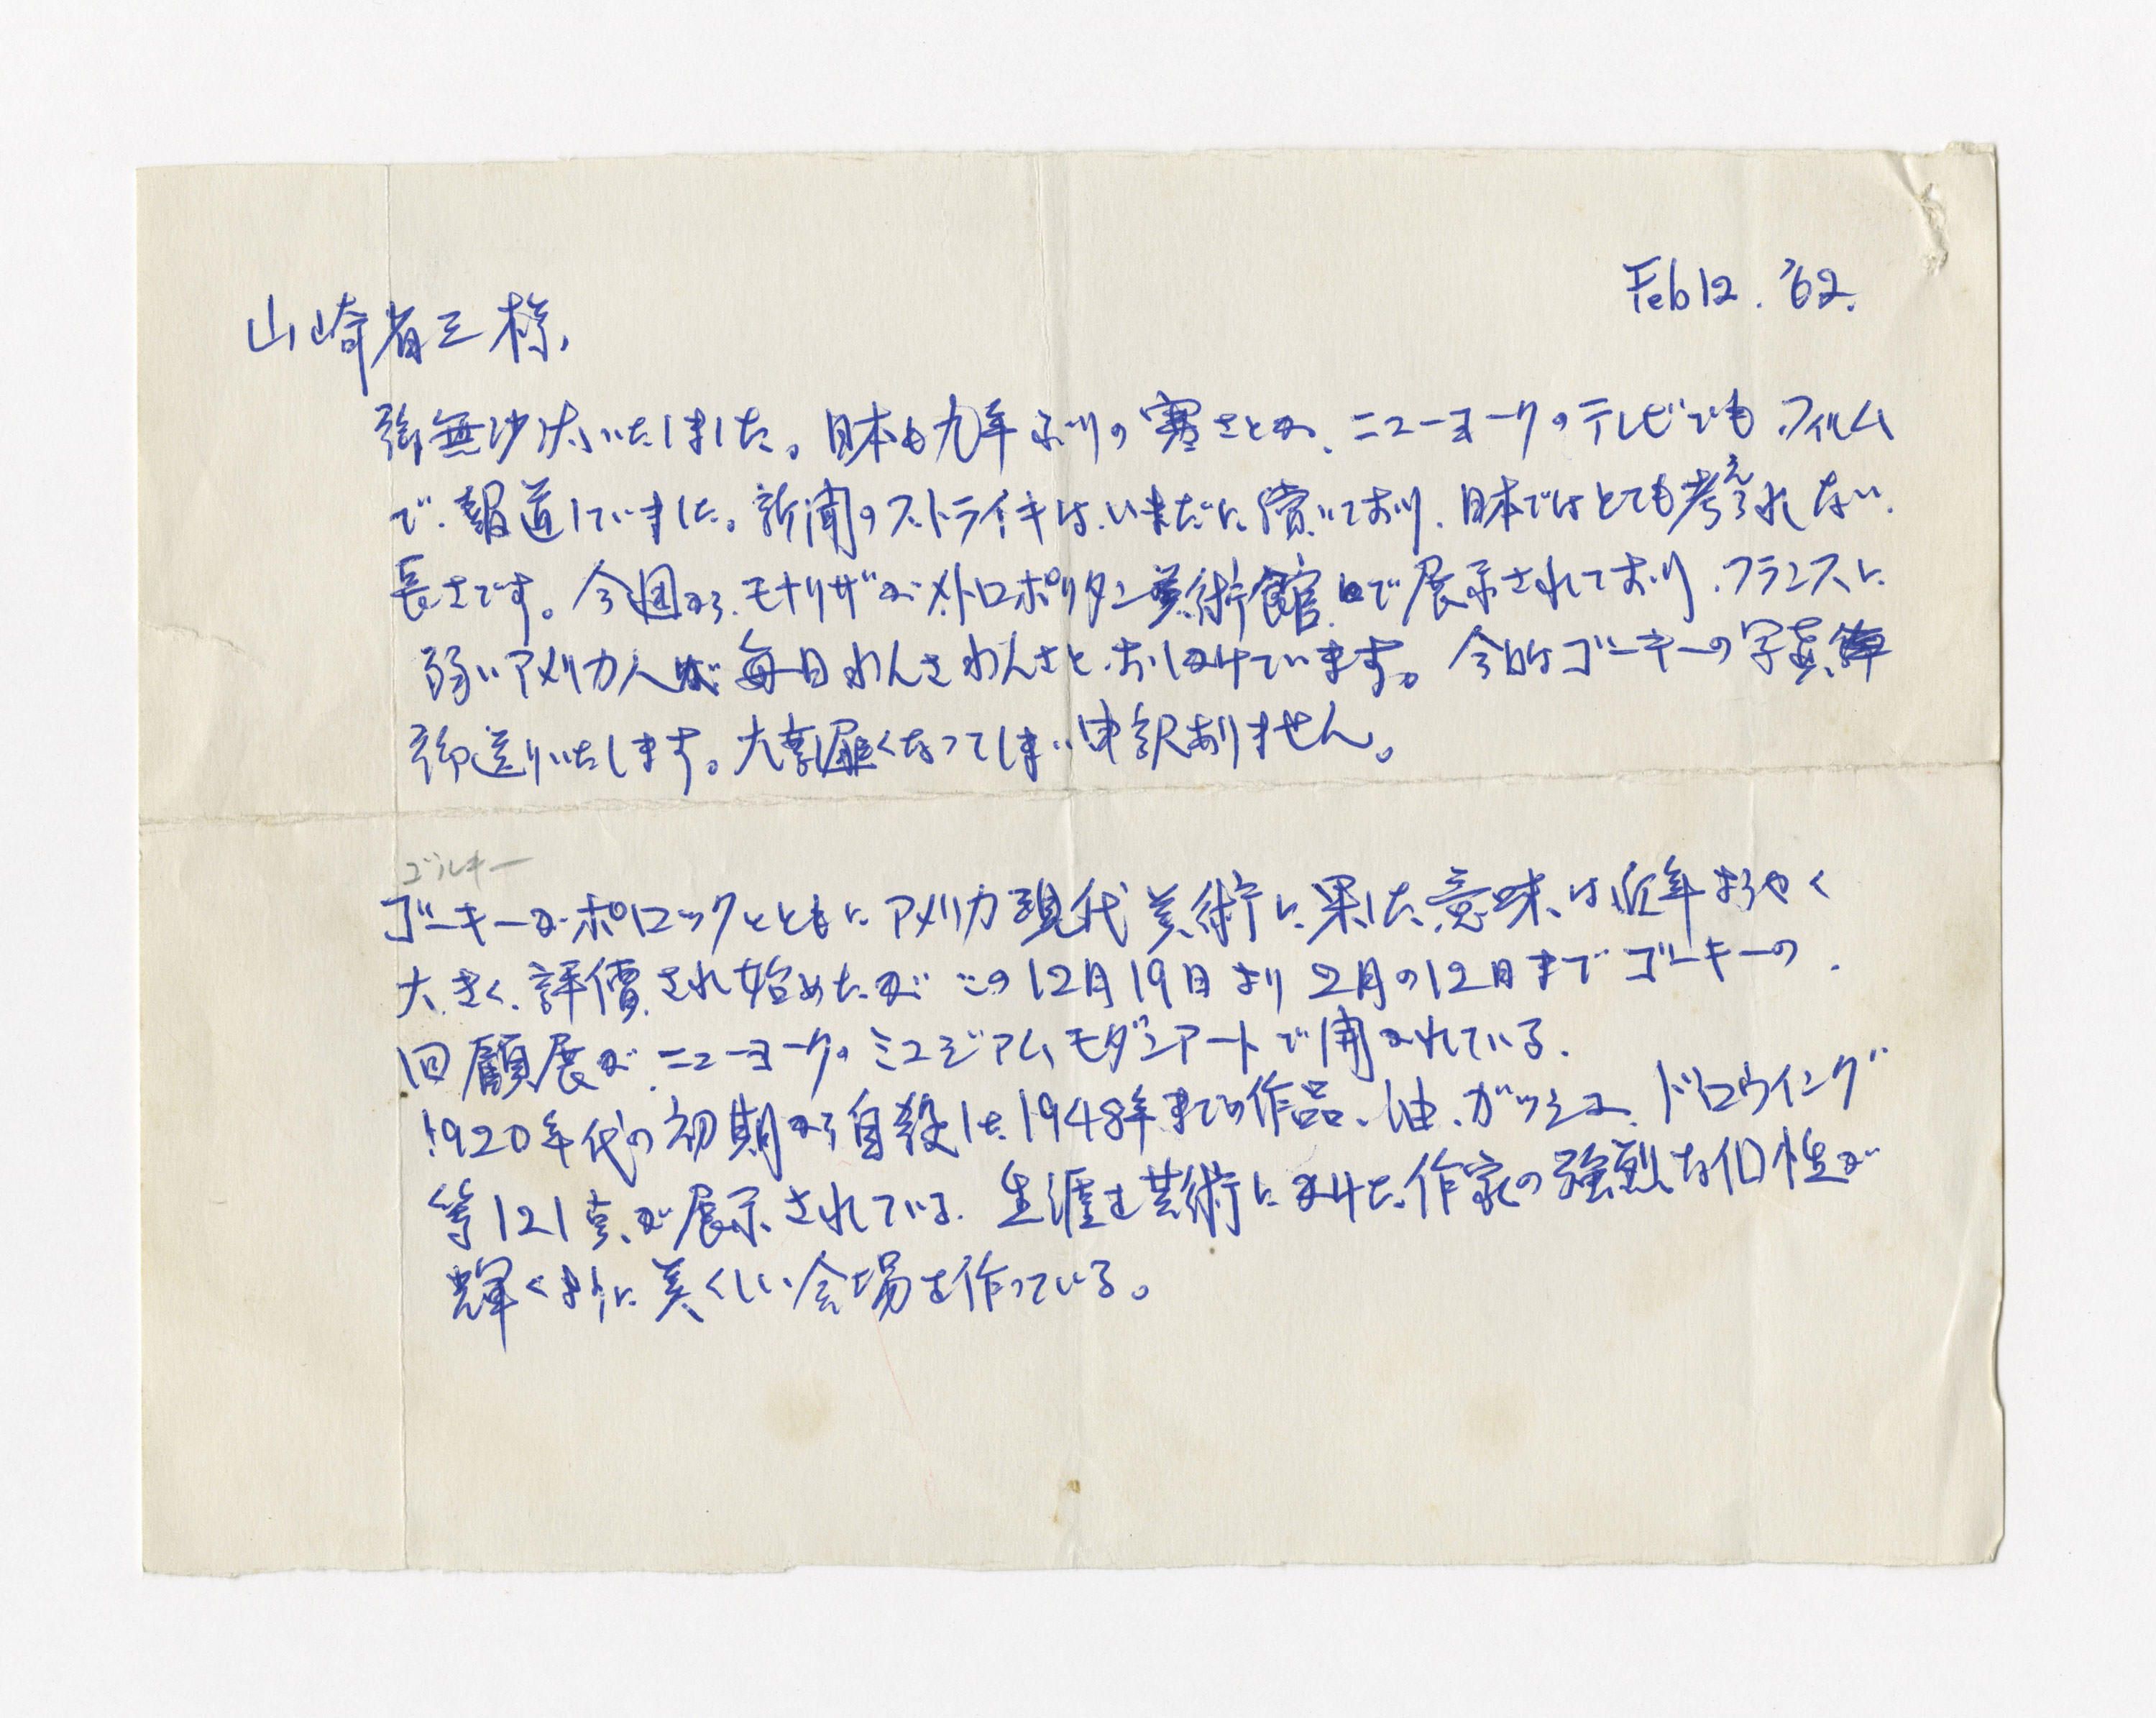 Feb 12. '62.
山崎省三様、
御無沙汰いたしました。日本も九年ぶりの寒さとか、ニューヨークのテレビでもフィルム
で報道していました。新聞のストライキは、いまだに続いており、日本ではとても考えられない
長さです。今週から、モナリザがメトロポリタン美術館で展示されており、フランスに
弱いアメリカ人が毎日わんさわんさと、おしかけています。今日はゴーキーの写真
御送りいたします。大変遅くなってしまい申訳ありません。
ゴルキー
ゴーキーがポロックとともにアメリカ現代美術に果した意味は近年ようやく
大きく評價され始めたが この12月19日より2月の12日までゴーキーの
回顧展が、ニューヨークのミュジアム モダンアートで開かれている.
1920年代の初期から自殺した1948年までの作品、油、ガッシュ、ドロウイング
等121点が展示されている. 生涯を芸術にかけた作家の強烈な個性が
輝くように美くしい会場を作っている。